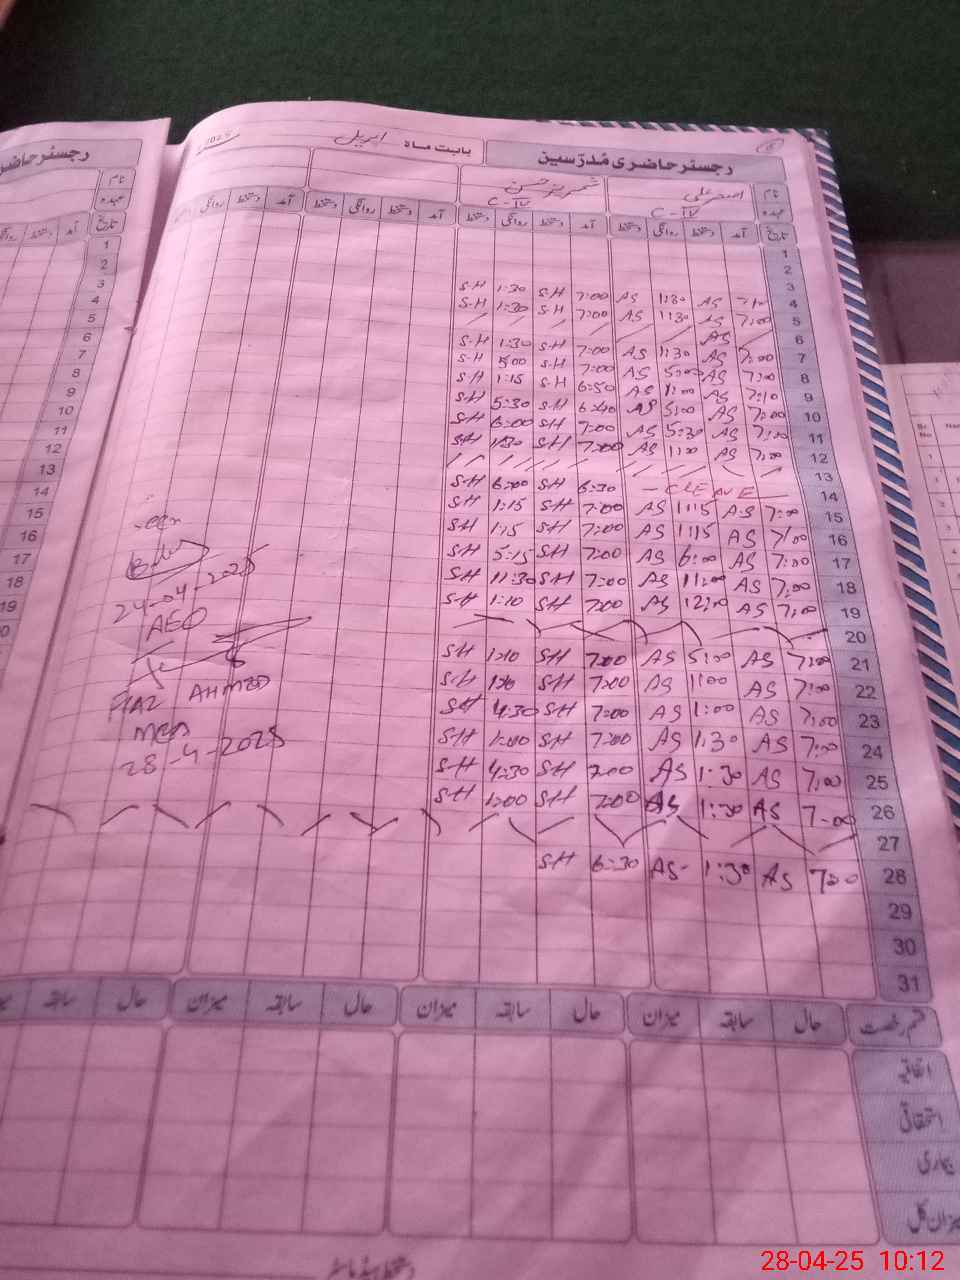 رجسٹر حاضری مُدرّسین بابت ماہ اپریل 2025
نام اصغر علی
عہدہ C-IV C-IV
تاریخ آمد دستخط روانگی دستخط آمد دستخط روانگی دستخط آمد دستخط روانگی دستخط آمد دستخط روانگی
1
2
3
4 7:10 AS 1:30 AS 7:00 S-H 1:30 S-H
5 7:00 AS 1:30 AS 7:00 S-H 1:30 S-H
6 AS
7 7:00 AS 1:30 AS 7:00 S-H 1:30 S-H
8 7:00 AS 5:00 AS 7:00 S-H 5:00 S-H
9 7:10 AS 1:00 AS 6:50 S-H 1:15 S-H
10 7:00 AS 5:00 AS 6:40 S-H 5:30 S-H
11 7:00 AS 5:30 AS 7:00 S-H 6:00 S-H
12 7:00 AS 1:00 AS 7:00 S-H 1:30 S-H
13
14 C LEAVE 6:30 S-H 6:00 S-H
15 7:00 AS 1:15 AS 7:00 S-H 1:15 S-H
16 7:00 AS 1:15 AS 7:00 S-H 1:15 S-H
17 7:00 AS 6:00 AS 7:00 S-H 5:15 S-H
18 7:00 AS 11:00 AS 7:00 S-H 11:30 S-H
19 7:00 AS 12:00 AS 7:00 S-H 1:10 S-H
20
21 7:00 AS 5:00 AS 7:00 S-H S-H
22 7:00 AS 1:00 AS 7:00 S-H S-H
23 7:00 AS 1:00 AS 7:00 S-H 4:30 S-H
24 7:00 AS 1:30 AS 7:00 S-H 1:00 S-H
25 7:00 AS 1:30 AS 7:00 S-H 4:30 S-H
26 7:00 AS 1:30 AS 7:00 S-H 1:00 S-H
27
28 7:00 AS 1:30 AS 6:30 S-H
29
30
31
24-04-2025
AEO
FIAZ AHMED
MEA
28-4-2025
قسم رخصت حال سابقہ میزان حال سابقہ میزان حال سابقہ میزان حال سابقہ
اتفاقیہ
استحقاقی
بیماری
میزان کل
دستخط ہیڈ ماسٹر
رجسٹر حاضری
نام
عہدہ
تاریخ آمد دستخط
1
2
3
4
5
6
7
8
9
10
11
12
13
14
15
16
17
18
19
Sr. No
28-04-25 10:12